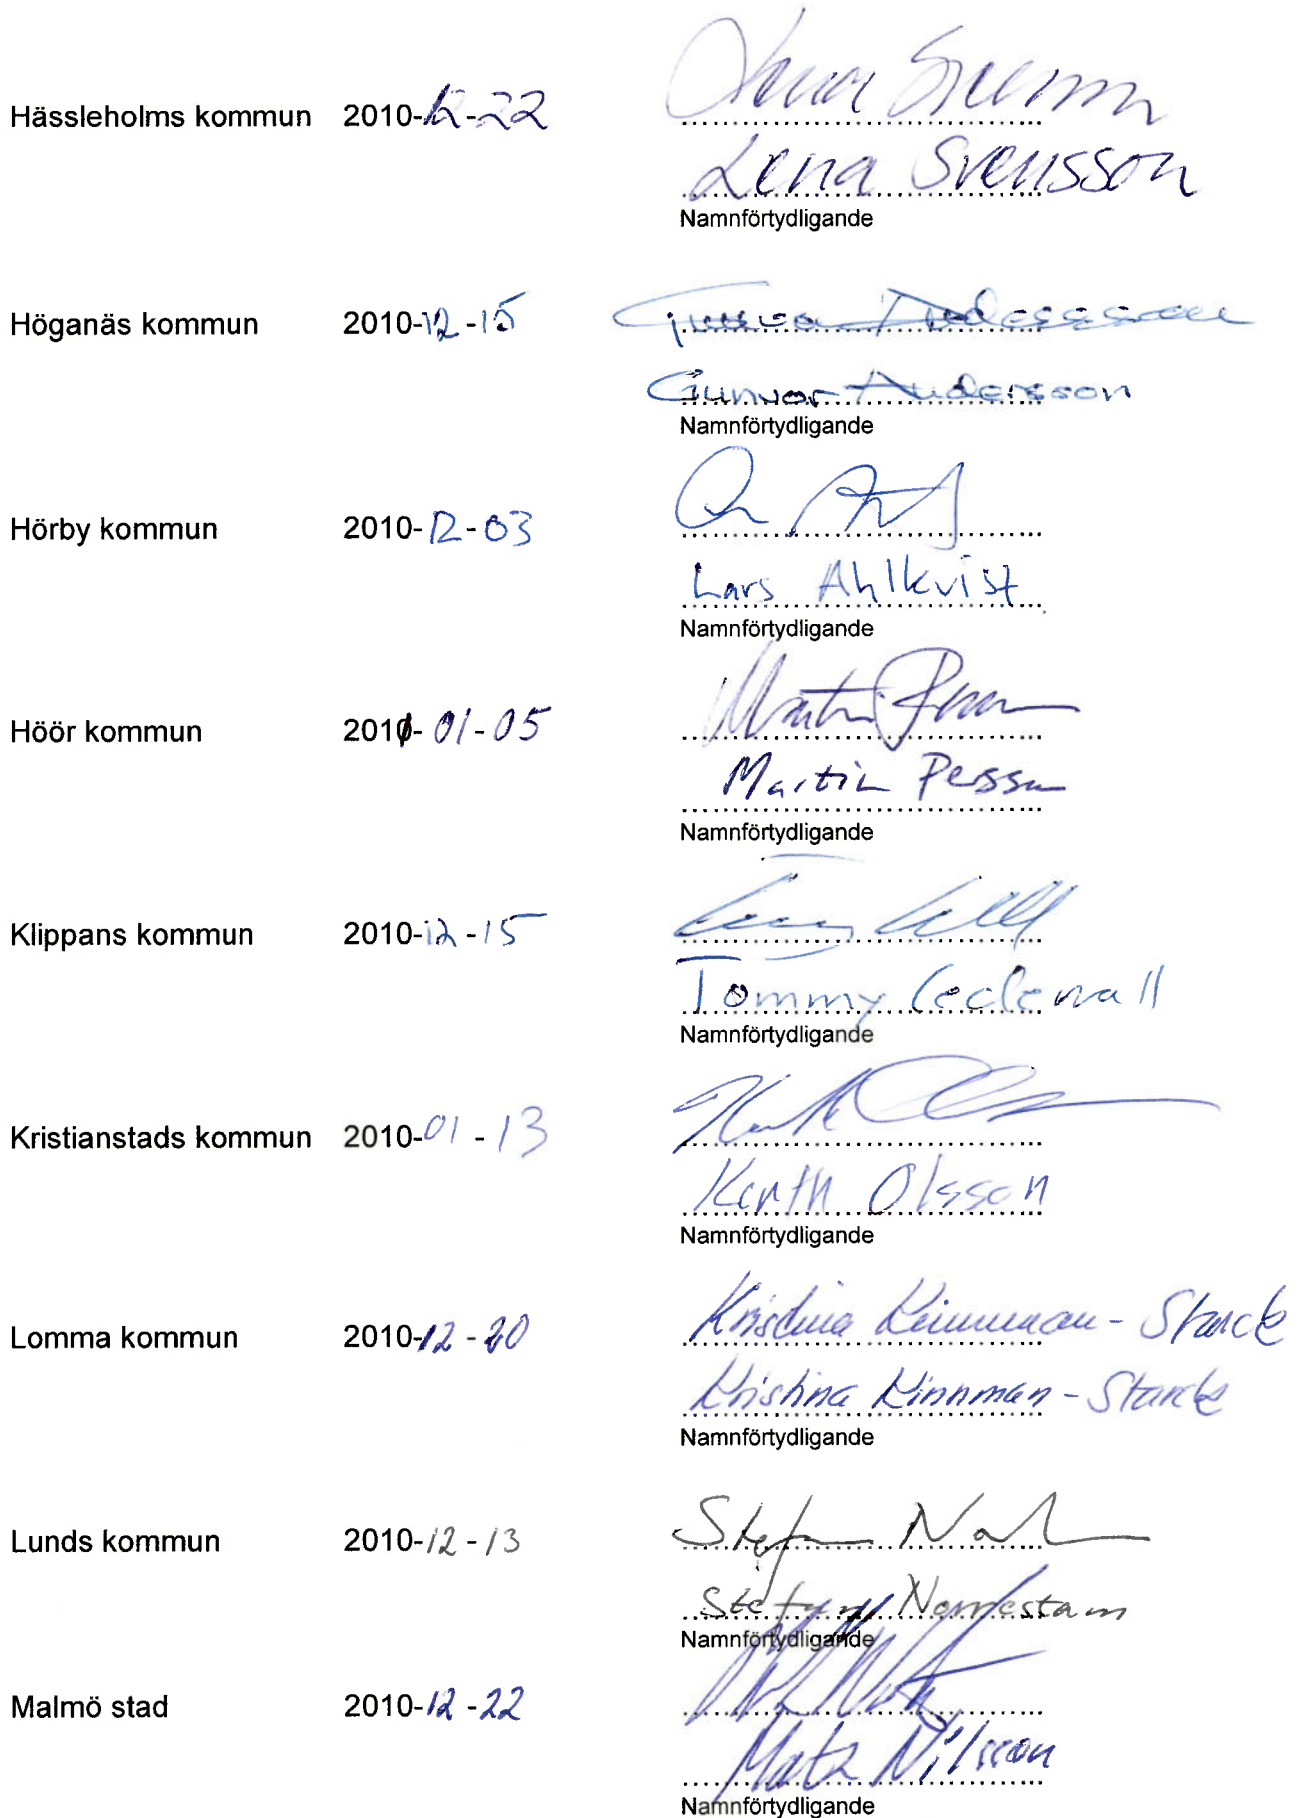 Hässleholms kommun 2010-12-22 Lena Svensson
Lena Svensson
Namnförtydligande
Höganäs kommun 2010-12-15 Gunvor Andersson
Gunvor Andersson
Namnförtydligande
Hörby kommun 2010-12-03
Lars Ahlkvist
Namnförtydligande
Höör kommun 2011-01-05 Martin Persson
Martin Persson
Namnförtydligande
Klippans kommun 2010-12-15
Tommy Cedervall
Namnförtydligande
Kristianstads kommun 2010-01-13
Olsson
Namnförtydligande
Lomma kommun 2010-12-20 Kristina Kinnman-Starck
Kristina Kinnman-Starck
Namnförtydligande
Lunds kommun 2010-12-13 Stefan
Stefan Norrestam
Namnförtydligande
Malmö stad 2010-12-22
Mats Nilsson
Namnförtydligande